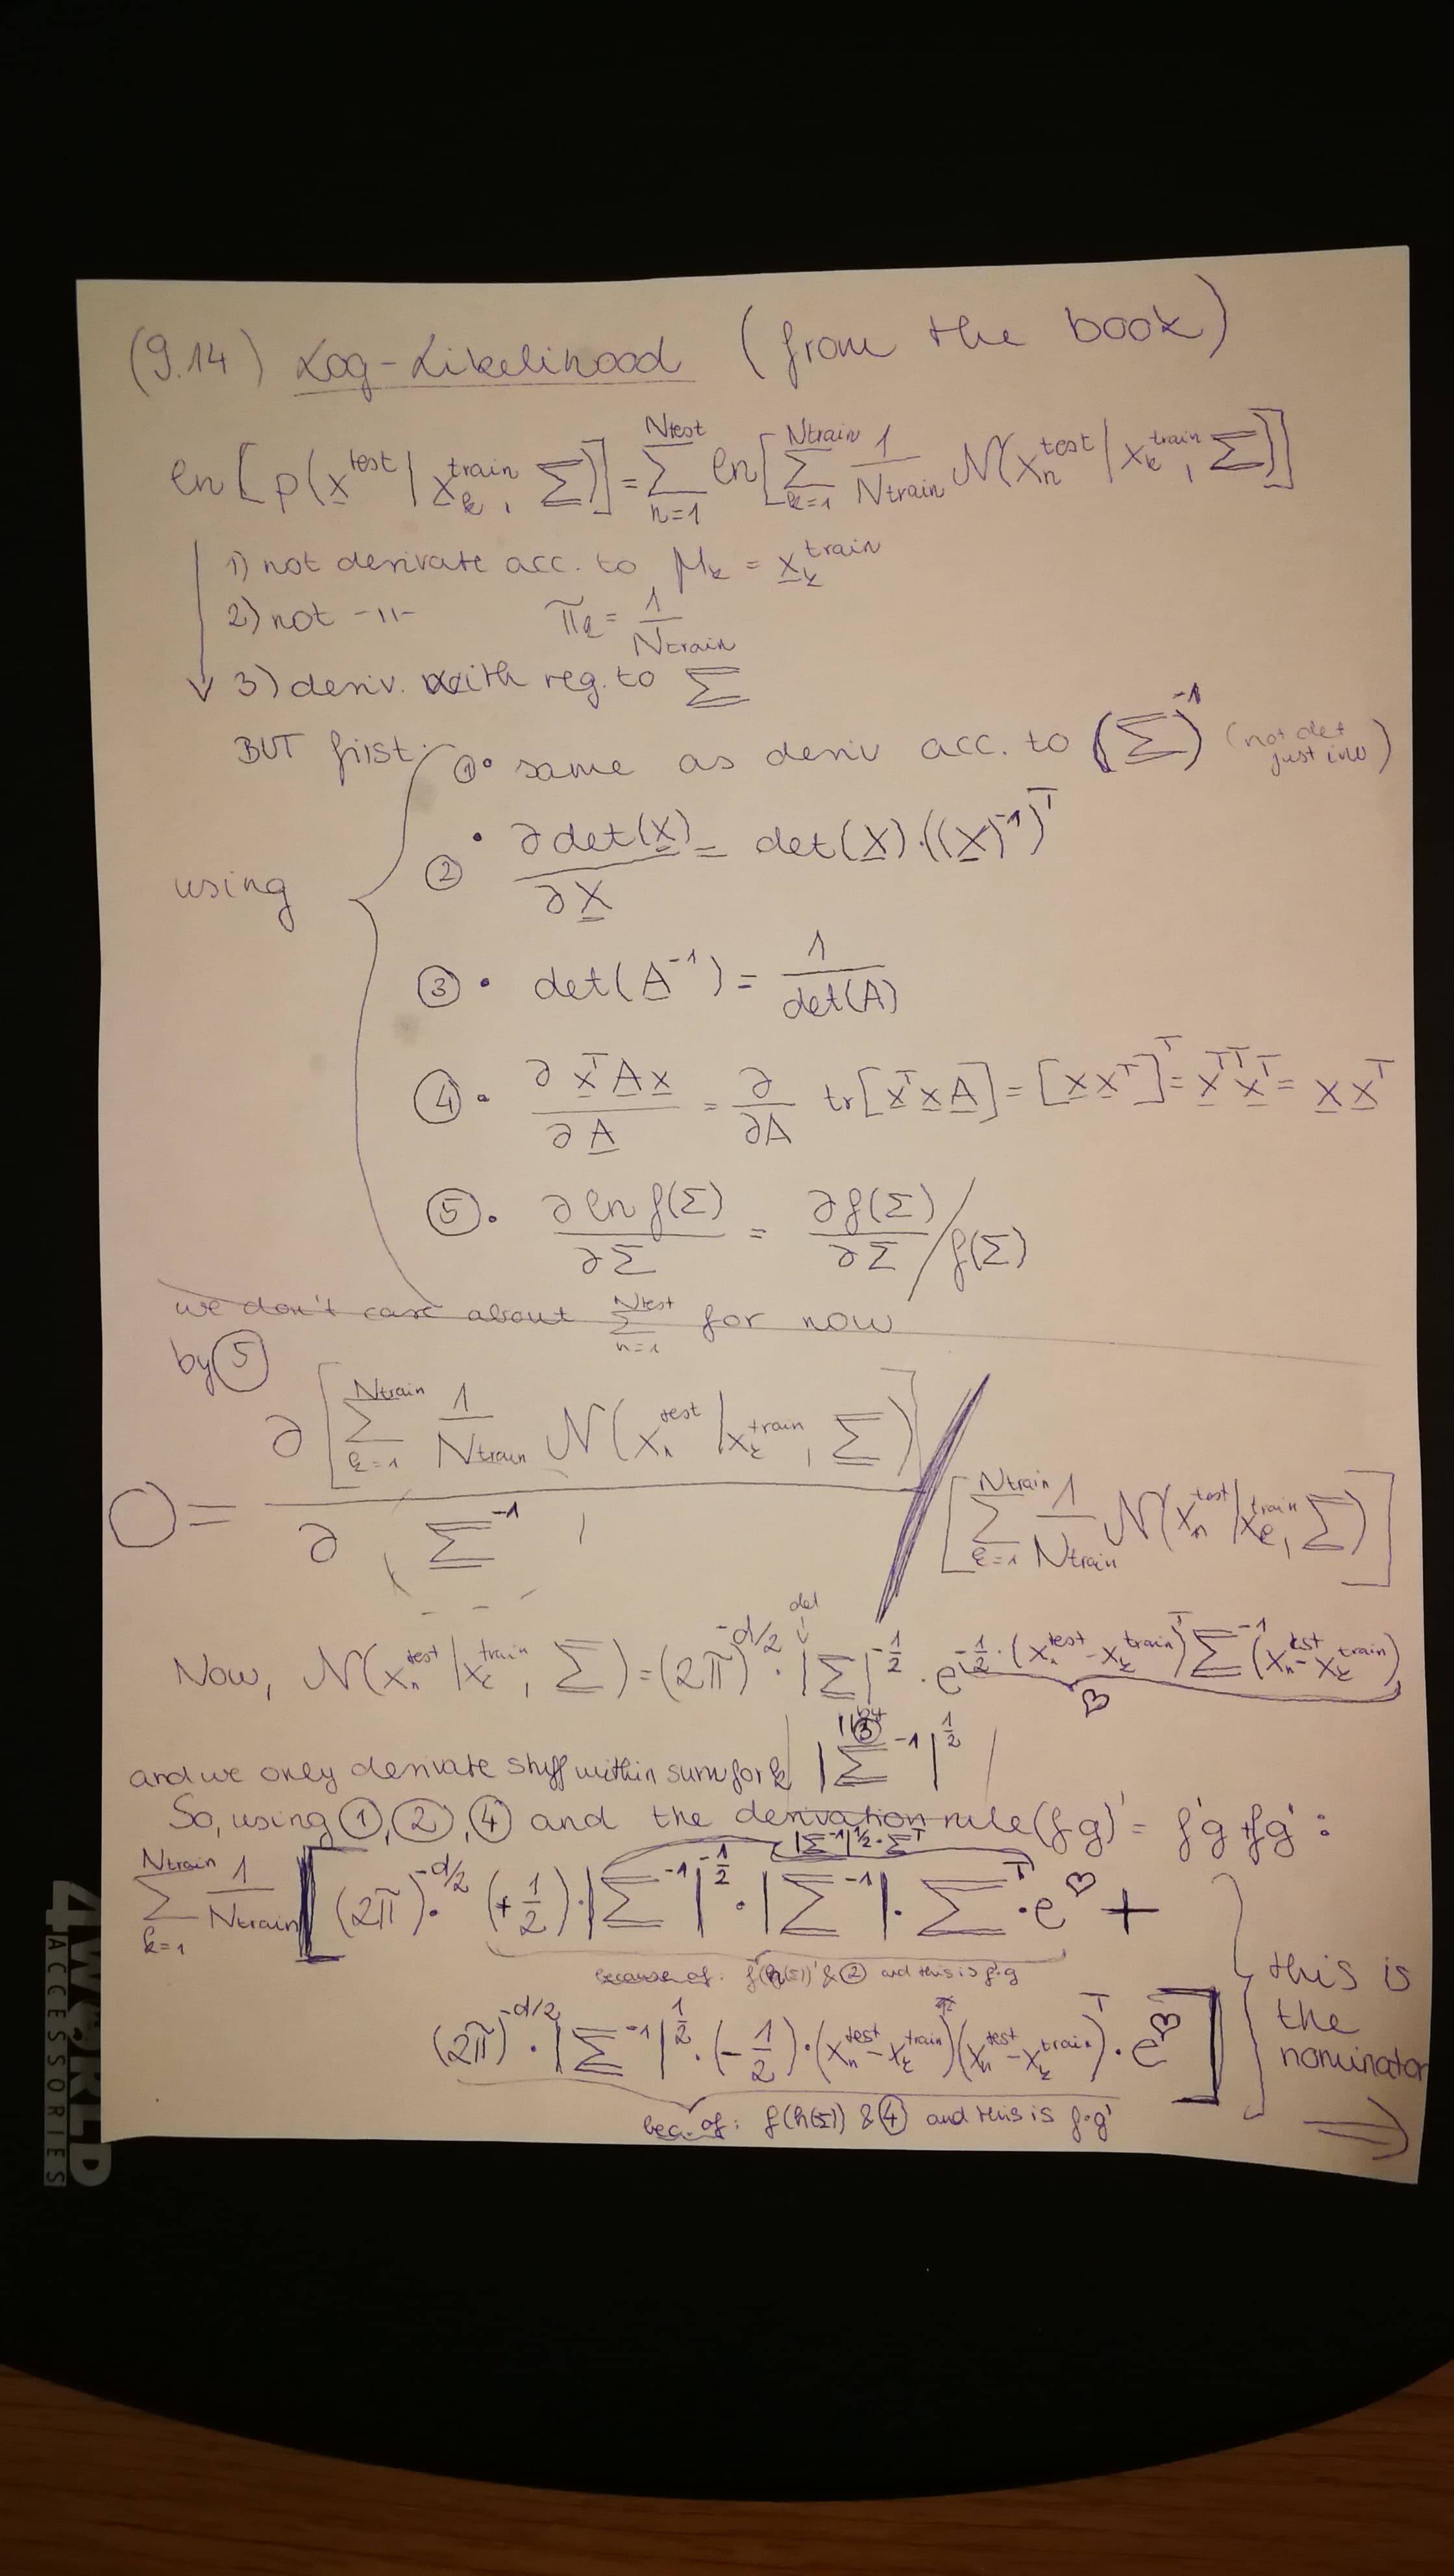 (9.14) Log-Likelihood (from the book)
ln[p(x^test | x_k^train, Σ)] = Σ_{n=1}^{Ntest} ln[Σ_{k=1}^{Ntrain} 1/Ntrain N(x_n^test | x_k^train, Σ)]
1) not derivate acc. to μ_k = x_k^train
2) not -"- π_k = 1/Ntrain
↓ 3) deriv. with reg. to Σ
BUT first: ①• same as deriv acc. to (Σ)^-1 (not det just inv)
using
② • ∂det(X)/∂X = det(X)·((X)^-1)^T
③ • det(A^-1) = 1/det(A)
④ • ∂x^T A x/∂A = ∂/∂A tr[x^T x A] = [x x^T]^T = x^TT x^T = x x^T
⑤ • ∂ln f(Σ)/∂Σ = ∂f(Σ)/∂Σ / f(Σ)
we don't care about Σ_{n=1}^{Ntest} for now
by ⑤
0 = ∂[Σ_{k=1}^{Ntrain} 1/Ntrain N(x_n^test | x_k^train, Σ)] / ∂Σ^-1 / [Σ_{k=1}^{Ntrain} 1/Ntrain N(x_n^test | x_k^train, Σ)]
det
Now, N(x_n^test | x_k^train, Σ) = (2π)^{-d/2} · |Σ|^{-1/2} · e^{-1/2·(x_n^test - x_k^train)^T Σ^-1 (x_n^test - x_k^train)}
♡
|| by ③
and we only derivate stuff within sum for k |Σ^-1|^{1/2}
So, using ①, ②, ④ and the derivation rule (fg)' = f'g + fg':
|Σ^-1|^{1/2} · Σ^T
Σ_{k=1}^{Ntrain} 1/Ntrain [(2π)^{-d/2} · (+1/2)·|Σ^-1|^{-1/2} · |Σ^-1| · Σ^T · e^♡ +
because of: f'(h(Σ))' & ② and this is f'·g
(2π)^{-d/2} · |Σ^-1|^{1/2} · (-1/2)·(x_n^test - x_k^train)(x_n^test - x_k^train)^T · e^♡]
bec. of: f(h(Σ)) & ④ and this is f·g'
this is
the
nominator
⇒
4WORLD
ACCESSORIES